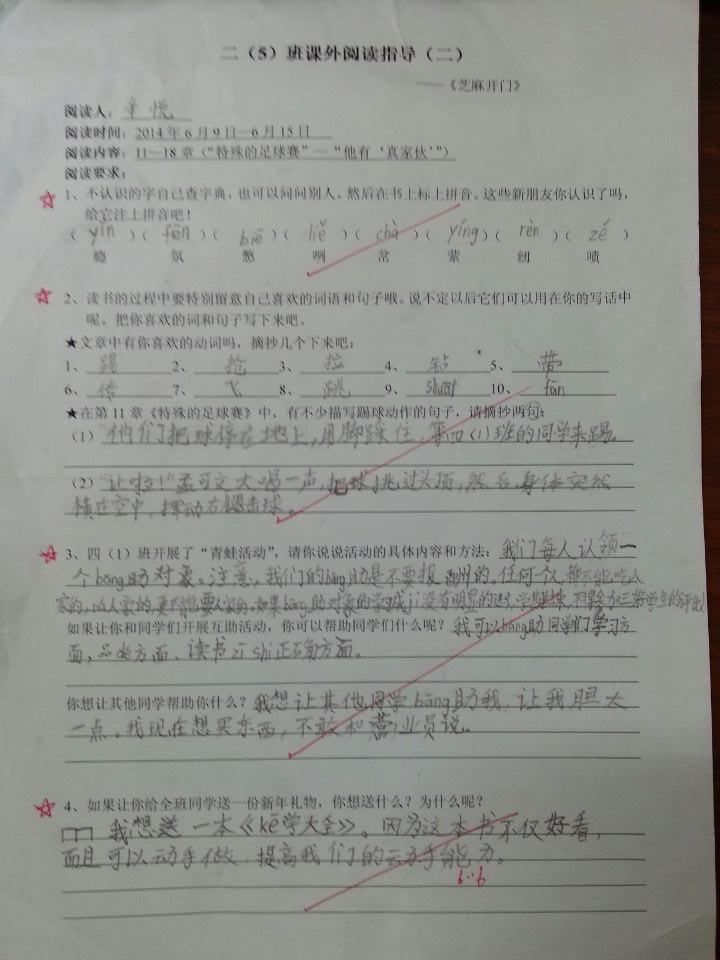 二（5）班课外阅读指导（二）
——《芝麻开门》
阅读人： 悦
阅读时间：2014年6月9日—6月15日
阅读内容：11—18章（“特殊的足球赛”—“他有‘真家伙’”）
阅读要求：
1、不认识的字自己查字典，也可以问问别人。然后在书上标上拼音。这些新朋友你认识了吗，
给它注上拼音吧！
（yǐn）（fēn）（biē）（liě）（chà）（yíng）（rèn）（zé）
瘾 氛 憋 咧 岔 萦 纫 啧
2、读书的过程中要特别留意自己喜欢的词语和句子哦。说不定以后它们可以用在你的写话中
呢。把你喜欢的词和句子写下来吧。
★文章中有你喜欢的动词吗，摘抄几个下来吧：
1、踢 2、抢 3、拉 4、钻 5、带
6、传 7、飞 8、跳 9、 10、fān
★在第11章《特殊的足球赛》中，有不少描写踢球动作的句子，请摘抄两句：
（1）他们把球停在地上，用脚踩住，等四（1）班的同学来踢。
（2）“让啦！”孟可文大喝一声，把球挑过头顶，然后，身体突然
横在空中，挥动右腿击球。
3、四（1）班开展了“青蛙活动”，请你说说活动的具体内容和方法：我们每人认领一
个bāng助对象。注意，我们的bāng助是不要报酬的，任何个人都不能吃人
家的，更不能要人家的，如果bāng助对象的学
如果让你和同学们开展互助活动，你可以帮助同学们什么呢？我可以bāng助同学们学习方
面，品 方面、读书zī shì正确方面。
你想让其他同学帮助你什么？我想让其他同学bāng助我，让我胆大
一点。我现在想买东西，不敢和营业员说。
4、如果让你给全班同学送一份新年礼物，你想送什么？为什么呢？
我想送一本《kē学大全》。因为这本书不仅好看，
而且可以动手做，提高我们的动手能力。
6..6